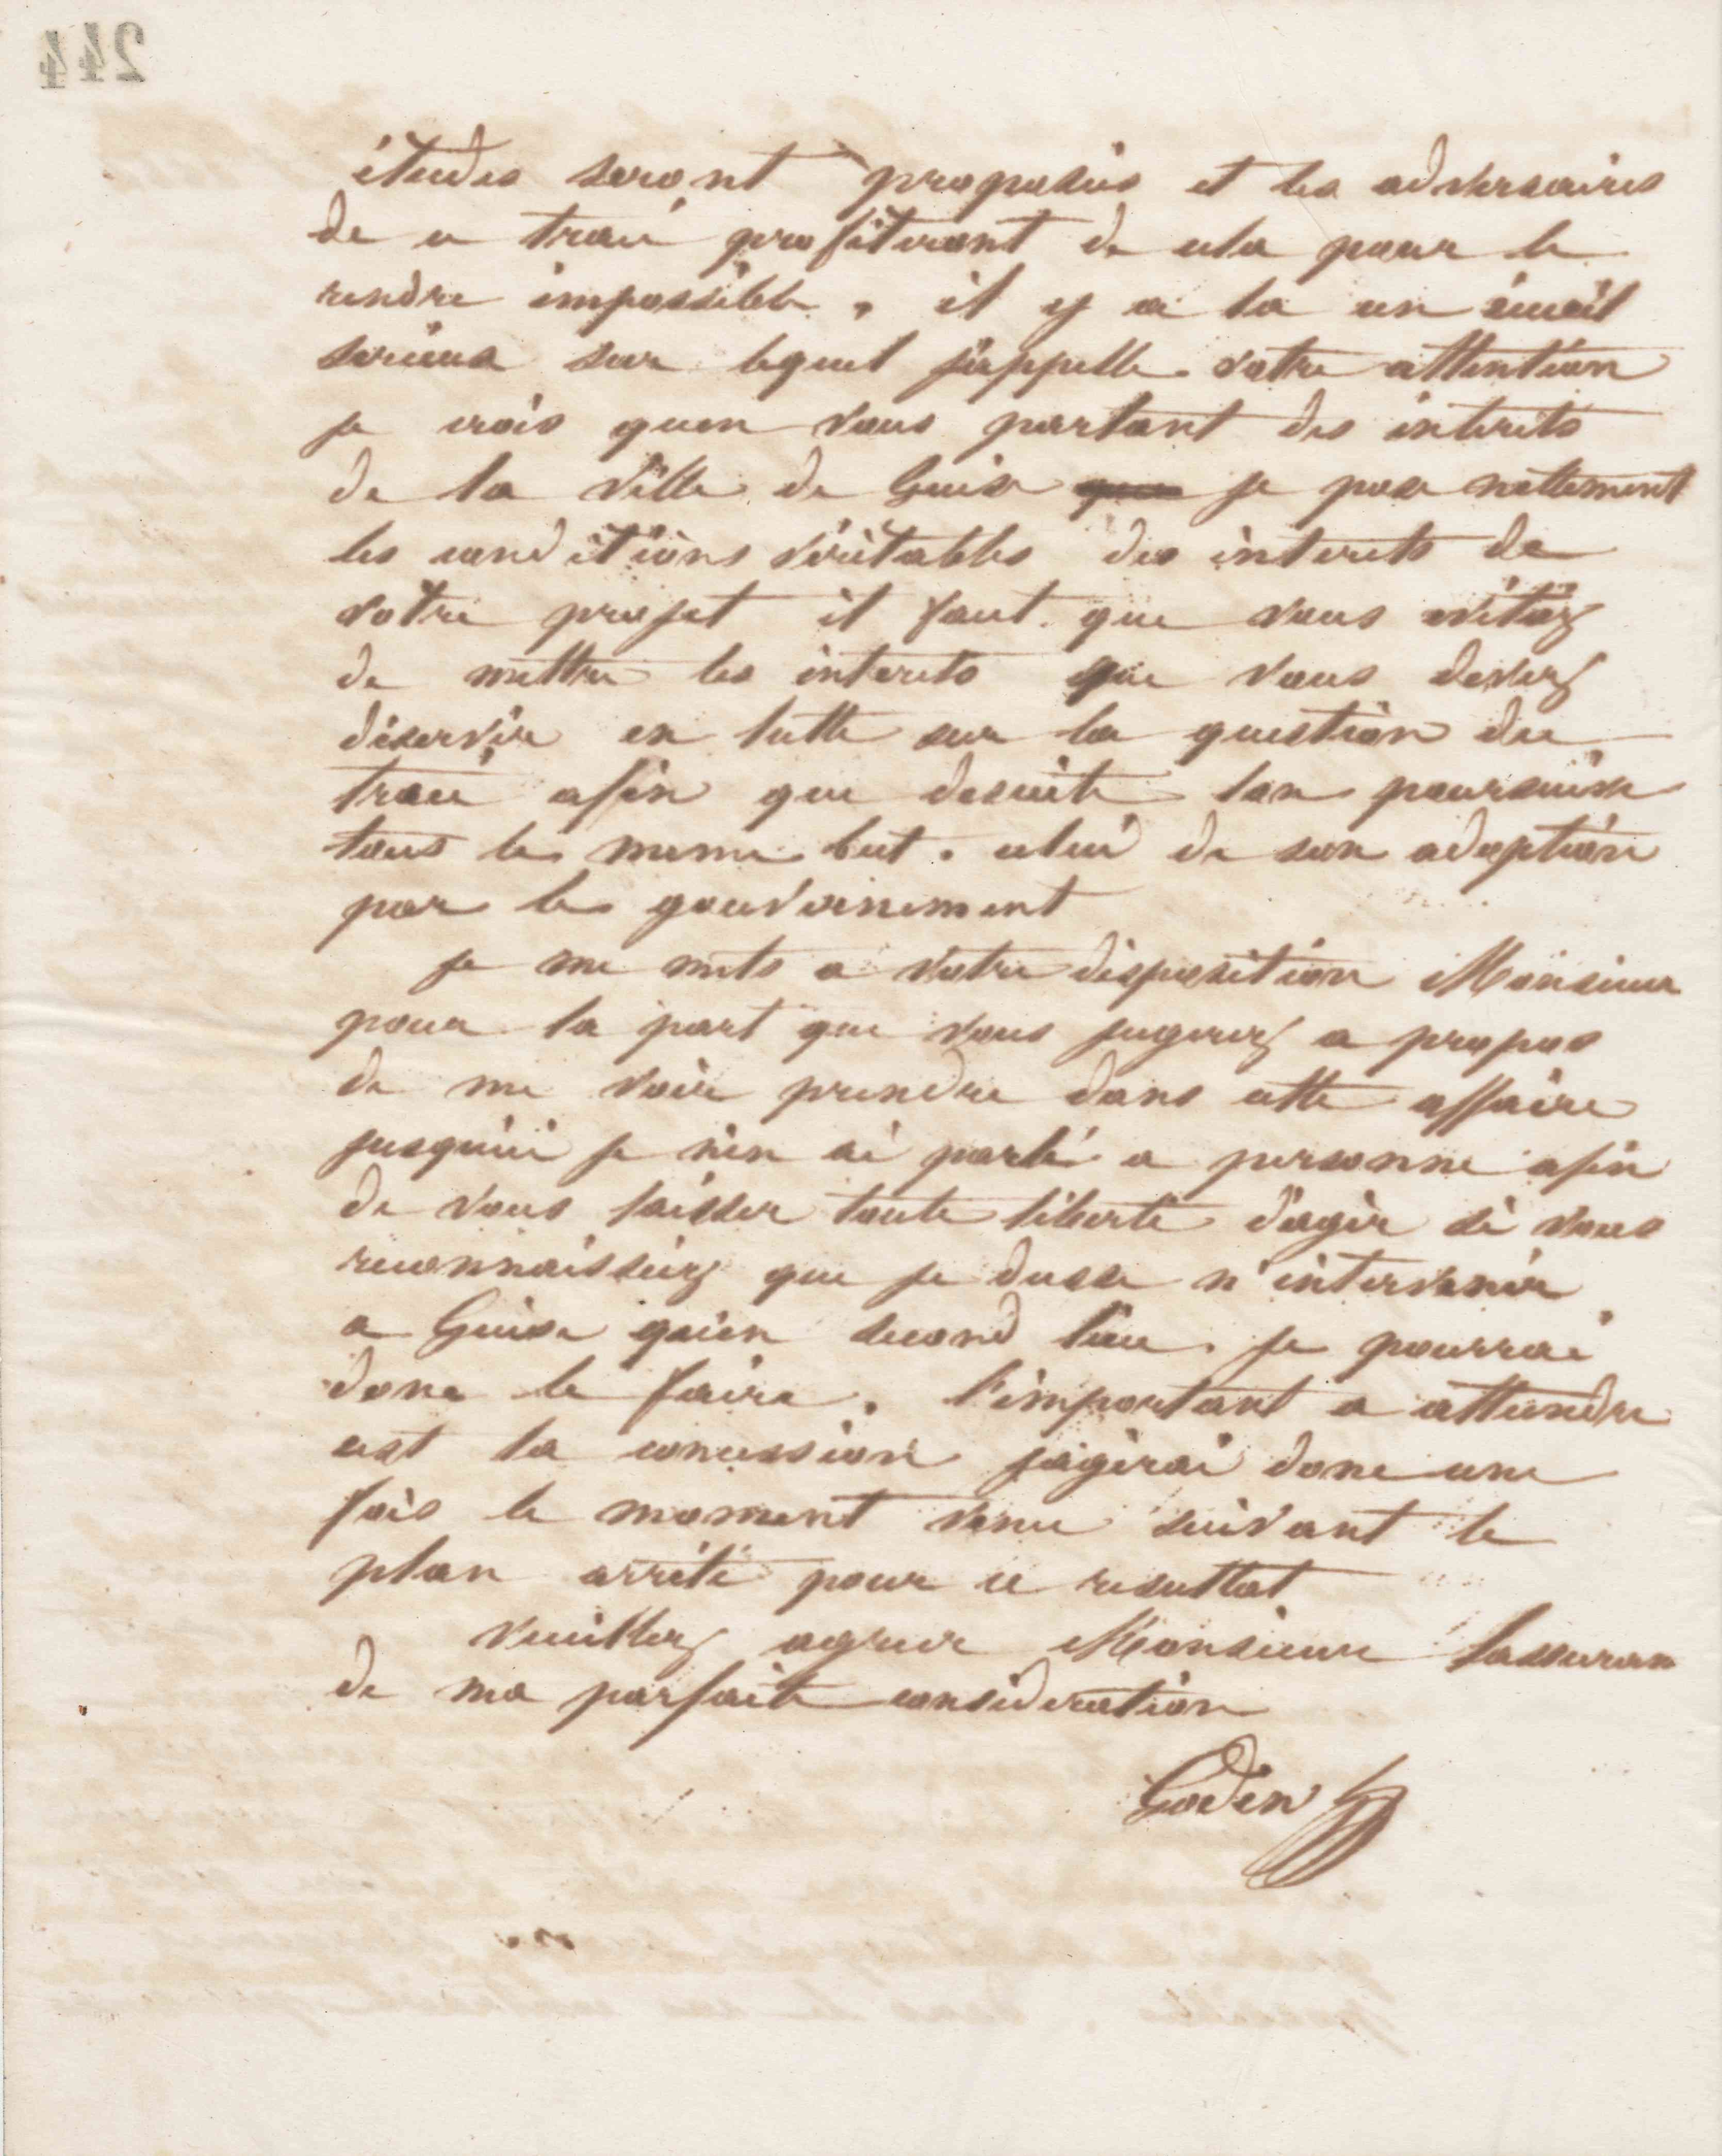 244
études seront proposées et les adversaires
de ce tracé profiteront de cela pour le
rendre impossible. il y a la un écueil
serieux sur lequel j'appelle votre attention
je crois quen vous parlant des interets
de la Ville de Guise que je pose nettement
les conditions véritables des interets de
votre projet il faut que vous evitiez
de mettre les interets que vous devez
déservir en lutte sur la question du
tracé afin que desuite lon poursuive
tous le meme but. celui de son adoption
par le gouvernement
je me mets a votre disposition Monsieur
pour la part que vous jugerez a propos
de me voir prendre dans cette affaire
jusquici je nen ai parlé a personne afin
de vous laisser toute liberté d'agir si vous
reconnaissiez que je dusse n'intervenir
a Guise qu'en second lieu. je pourrai
donc le faire. l'important a attendre
est la concession jagirai donc une
fois le moment venu suivant le
plan arrêté pour ce resultat
Veuillez agreer Monsieur lassurance
de ma parfaite consideration
Godin